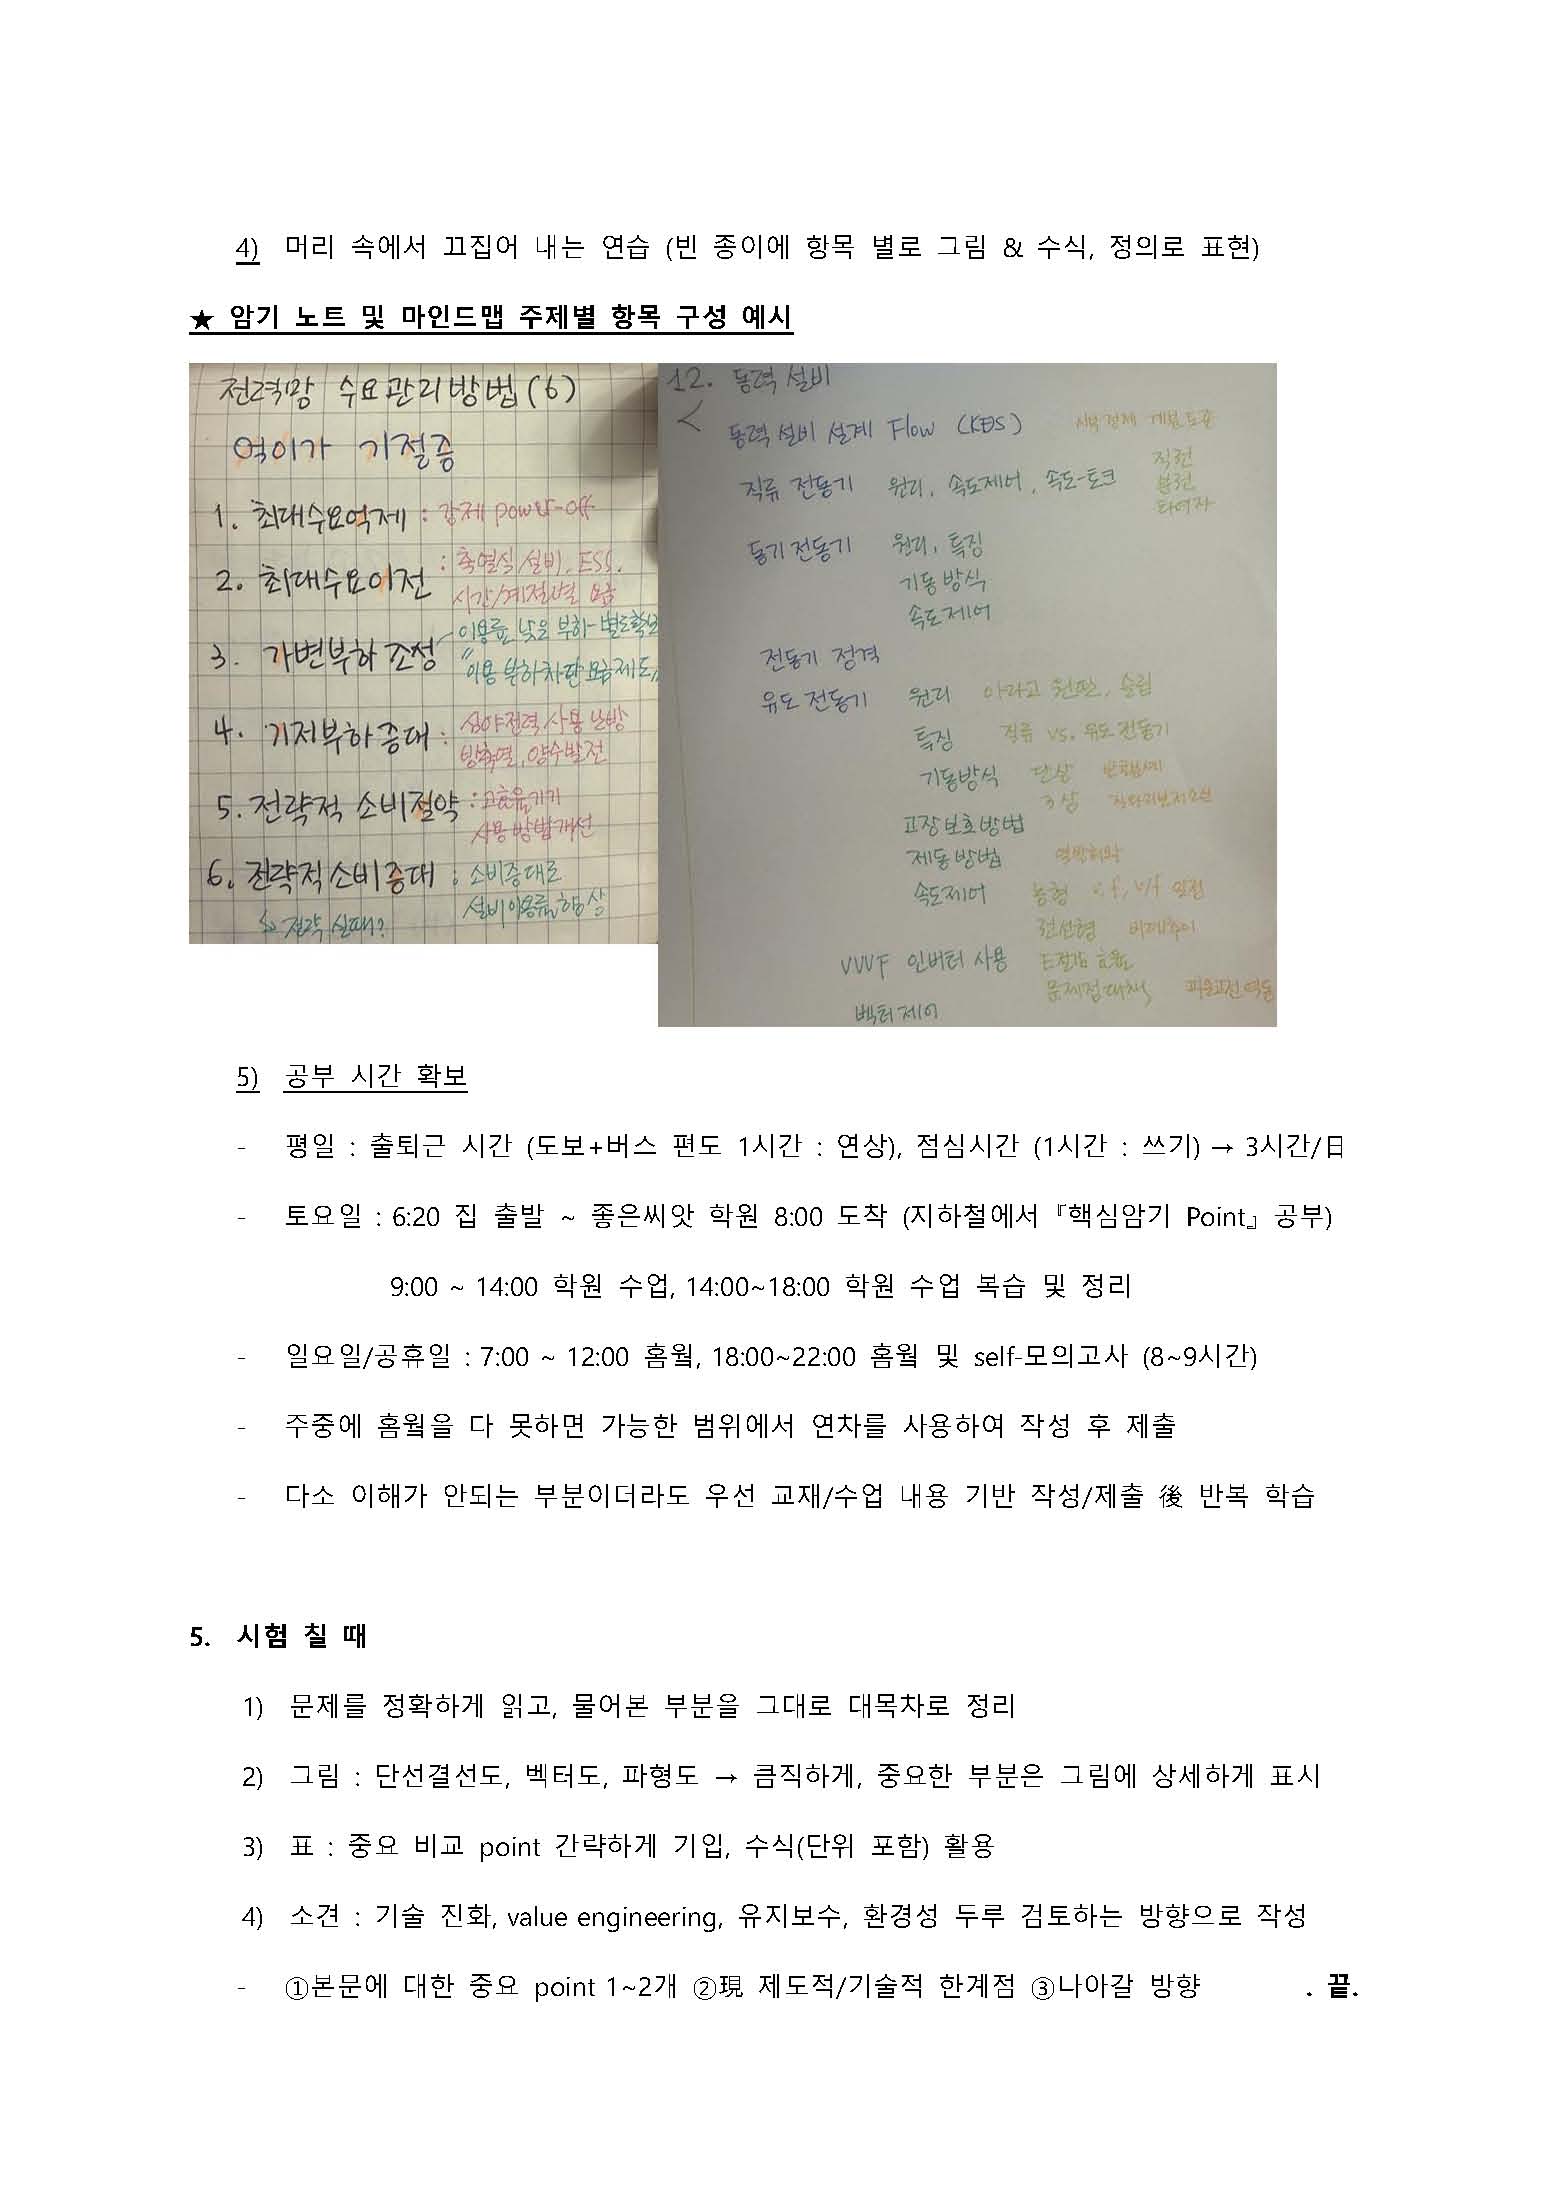 4) 머리 속에서 끄집어 내는 연습 (빈 종이에 항목 별로 그림 & 수식, 정의로 표현)
★ 암기 노트 및 마인드맵 주제별 항목 구성 예시
전력망 수요관리방법(6)
억이가 기절증
1. 최대수요억제 : 강제 power-off
2. 최대수요이전 : 축열식 설비, ESS,
시간/계절별 요금
3. 가변부하 조성 이용률 낮은 부하-별도확보
이용 부하차단 요금제도
4. 기저부하증대 : 심야전력 사용 난방
빙축열, 양수발전
5. 전략적 소비절약 : 고효율기기
사용방법개선
6. 전략적소비증대 : 소비증대로
설비이용률 향상
절략 실패?
12. 동력 설비
동력 설비 설계 Flow (KDS)
직류 전동기 원리, 속도제어, 속도-토크 직권
분권
타여자
동기 전동기 원리, 특징
기동 방식
속도제어
전동기 정격
유도 전동기 원리 아라고 원판, 슬립
특징 직류 vs. 유도전동기
기동방식 단상
3상
고장보호방법
제동방법
속도제어 농형
권선형
VVVF 인버터 사용 E절감 효율
문제점대책
벡터제어
5) 공부 시간 확보
- 평일 : 출퇴근 시간 (도보+버스 편도 1시간 : 연상), 점심시간 (1시간 : 쓰기) → 3시간/日
- 토요일 : 6:20 집 출발 ~ 좋은씨앗 학원 8:00 도착 (지하철에서 『핵심암기 Point』 공부)
9:00 ~ 14:00 학원 수업, 14:00~18:00 학원 수업 복습 및 정리
- 일요일/공휴일 : 7:00 ~ 12:00 홈웤, 18:00~22:00 홈웤 및 self-모의고사 (8~9시간)
- 주중에 홈웤을 다 못하면 가능한 범위에서 연차를 사용하여 작성 후 제출
- 다소 이해가 안되는 부분이더라도 우선 교재/수업 내용 기반 작성/제출 後 반복 학습
5. 시험 칠 때
1) 문제를 정확하게 읽고, 물어본 부분을 그대로 대목차로 정리
2) 그림 : 단선결선도, 벡터도, 파형도 → 큼직하게, 중요한 부분은 그림에 상세하게 표시
3) 표 : 중요 비교 point 간략하게 기입, 수식(단위 포함) 활용
4) 소견 : 기술 진화, value engineering, 유지보수, 환경성 두루 검토하는 방향으로 작성
- ①본문에 대한 중요 point 1~2개 ②現 제도적/기술적 한계점 ③나아갈 방향 . 끝.